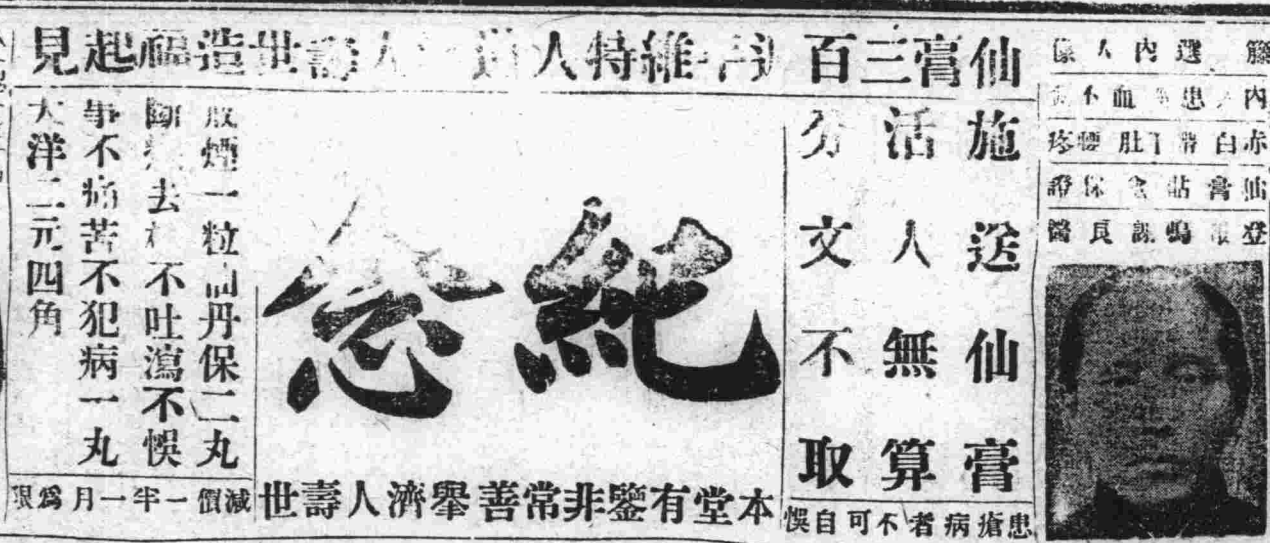 仙膏三百
人特維
人壽世造福起見
內選人像
內患血不
赤白帶下肚腰疼
仙膏貼會保證
登報鳴謝良醫
施送仙膏
活人無算
分文不取
患瘡病者不可自悞
紀念
本堂有鑒非常善舉濟人壽世
煙一粒仙丹保二丸
斷去不吐瀉不悞
事不痛苦不犯病一丸
大洋二元四角
減價一半一月為限